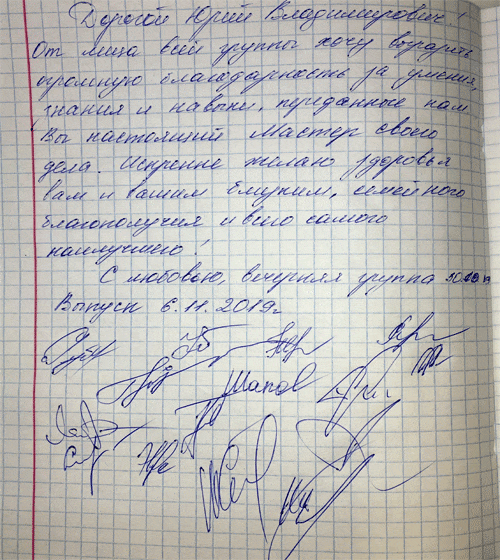 Дорогой Юрий Владимирович!
От лица всей группы хочу выразить
огромную благодарность за умения,
знания и навыки, переданные нам.
Вы настоящий Мастер своего
дела. Искренне желаю здоровья
вам и вашим близким, семейного
благополучия и всего самого
наилучшего!
С любовью, вечерняя группа
Выпуск 6.11.2019г
Шапов